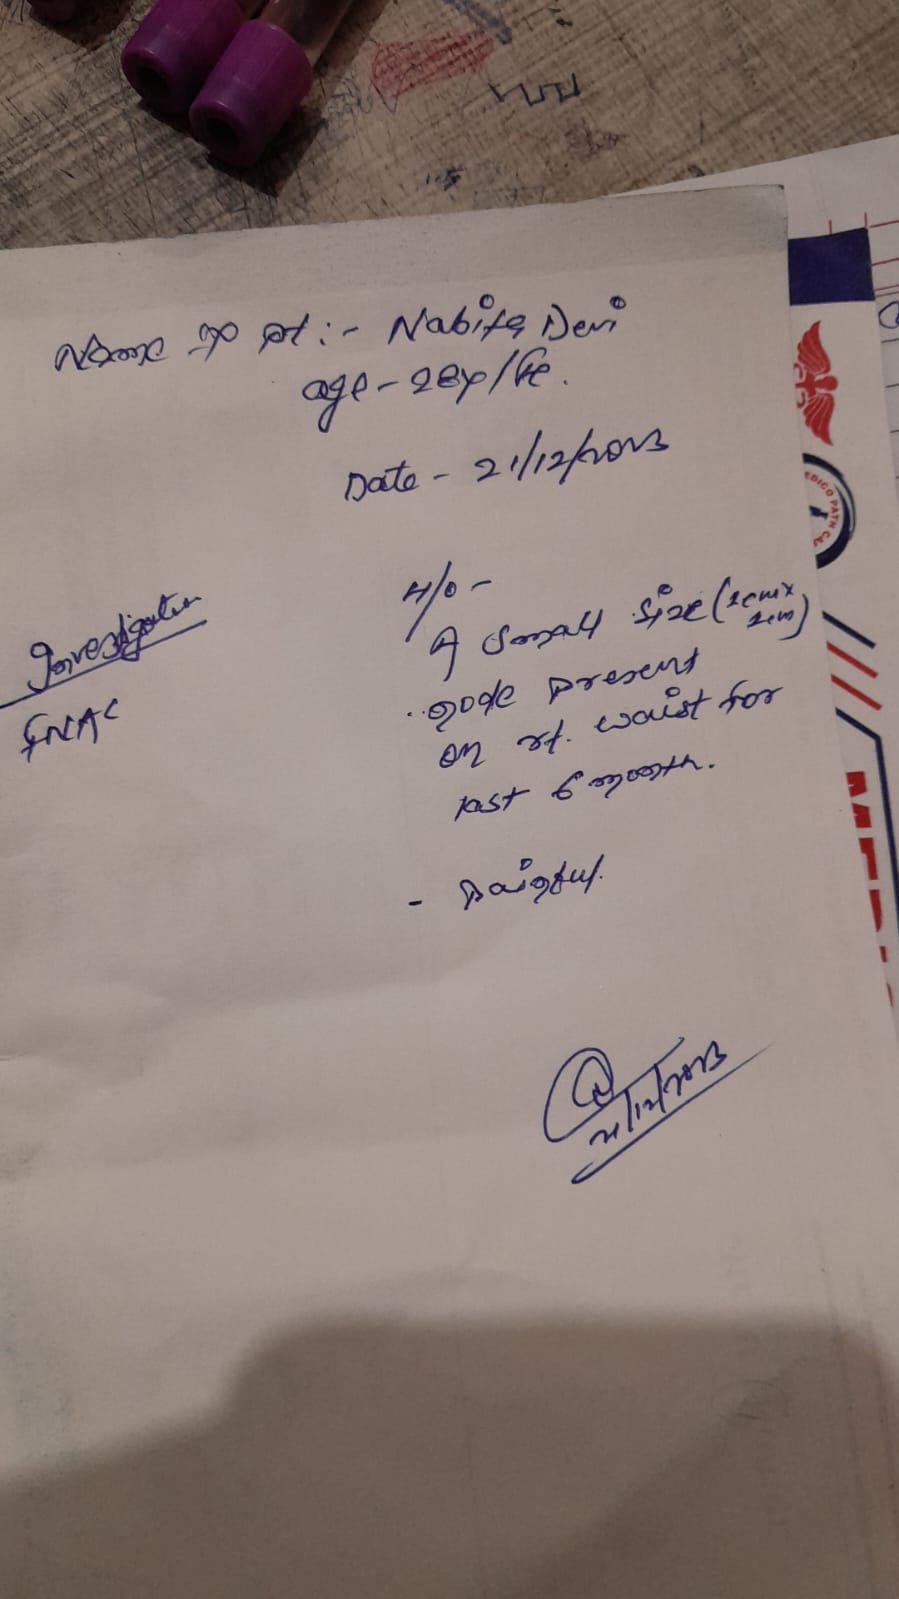 Name of pt :- Nabita Devi
age - 28y/Fe.
Date - 21/12/2023
H/O -
A small size (2cm x
2cm)
node present
on rt. waist for
last 6 month.
- Painful.
Investigation
FNAC
21/12/2023
EDICO PATH CA